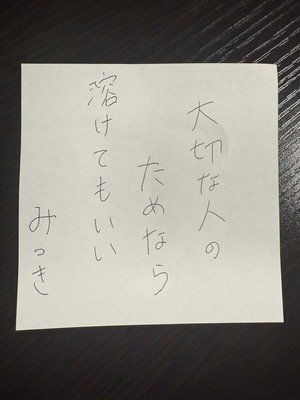 大切な人の
ためなら
溶けてもいい
みっき